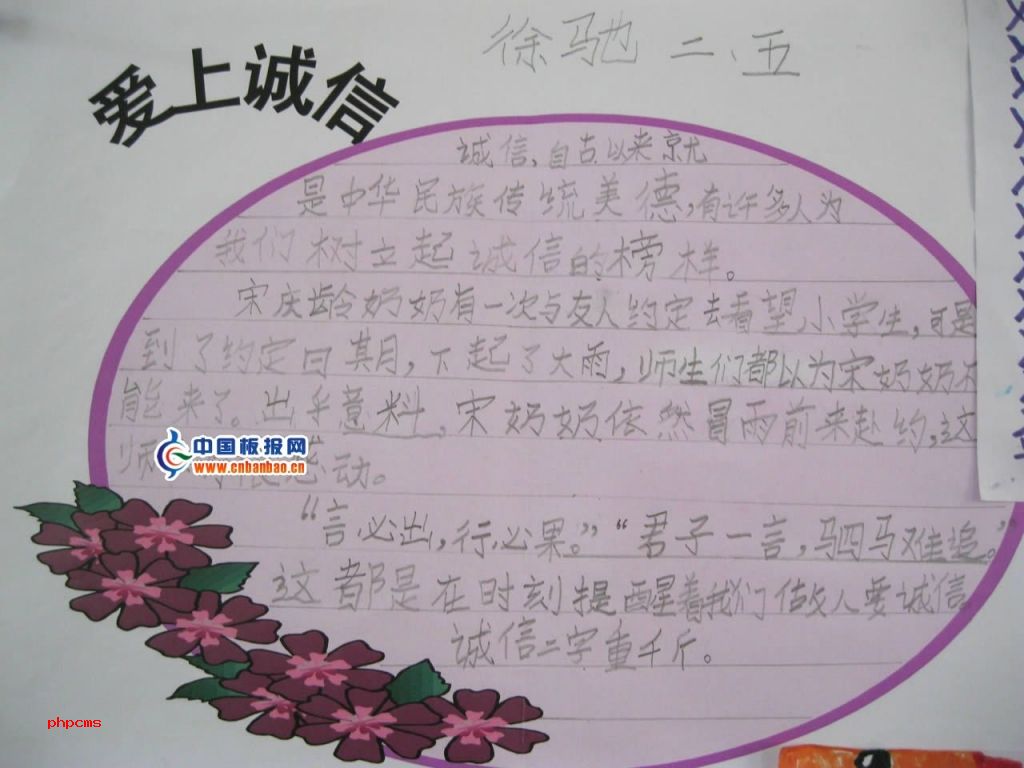 徐驰 二、五
爱上诚信
诚信,自古以来就
是中华民族传统美德,有许多人为
我们树立起诚信的榜样。
宋庆龄奶奶有一次与友人约定去看望小学生,可是
到了约定日期,下起了大雨,师生们都以为宋奶奶不
能来了。出乎意料,宋奶奶依然冒雨前来赴约,这
师 动。
中国板报网
www.cnbanbao.cn
“言必出,行必果。”“君子一言,驷马难追。”
这都是在时刻提醒着我们做人要诚信
诚信二字重千斤。
phpcms